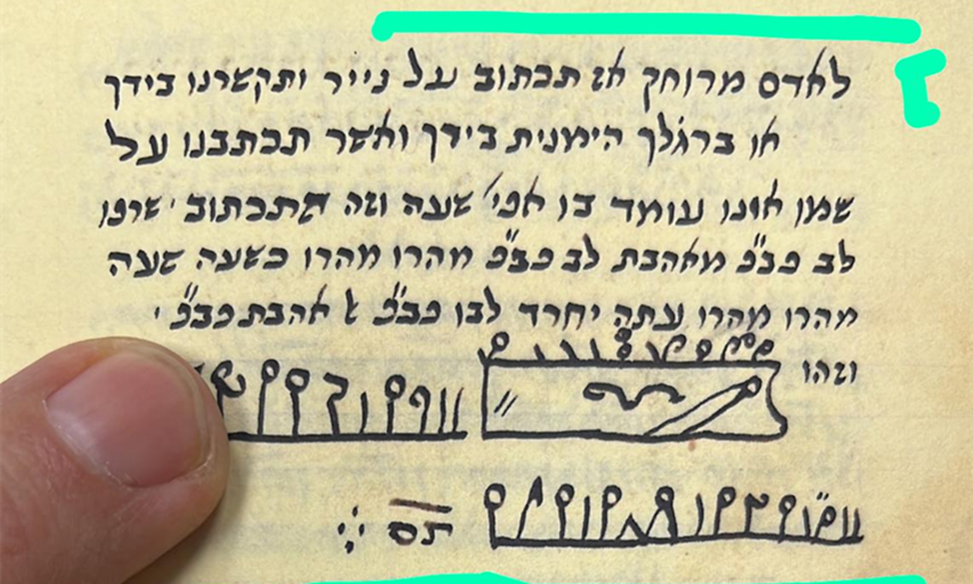 לאדם מרוחק אז תכתוב על נייר ותקשרנו בידך
או ברגלך הימנית בידך ואשר תכתבנו על
שמן אינו עומד בו אפי' שעה וזה שתכתוב ישרפו
לב פב״פ מאהבת לב פב״פ מהרו מהרו כשעה שעה
מהרו מהרו עתה יחרד לבו פב״פ ל אהבת פב״פ
וזהו
תם